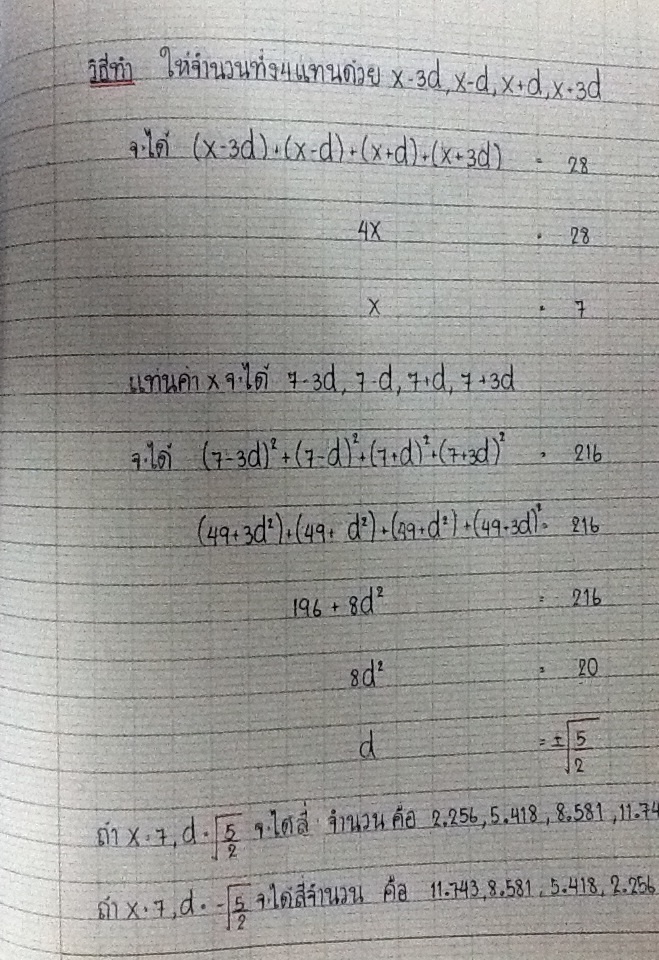 วิธีทำ ให้จำนวนทั้ง4แทนด้วย x-3d, x-d, x+d, x+3d
จะได้ (x-3d)+(x-d)+(x+d)+(x+3d) = 28
4x = 28
x = 7
แทนค่า x จะได้ 7-3d, 7-d, 7+d, 7+3d
จะได้ (7-3d)²+(7-d)²+(7+d)²+(7+3d)² = 216
(49+3d²)+(49+d²)+(49+d²)+(49+3d)² = 216
196 + 8d² = 216
8d² = 20
d = ±√5/2
ถ้า x=7, d=√5/2 จะได้สี่ จำนวน คือ 2.256, 5.418, 8.581, 11.74
ถ้า x=7, d=-√5/2 จะได้สี่จำนวน คือ 11.743, 8.581, 5.418, 2.256